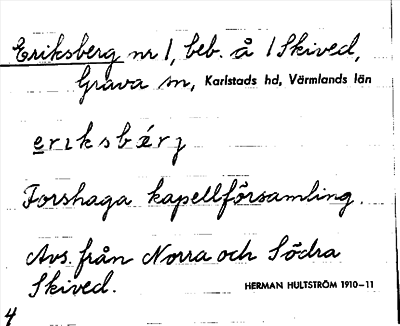 Eriksberg nr 1, beb. å 1 Skived,
Grava sn, Karlstads hd, Värmlands län
erɪksbǽrj
Forshaga kapellförsamling.
Avs. från Norra och Södra
Skived.
HERMAN HULTSTRÖM 1910-11
4